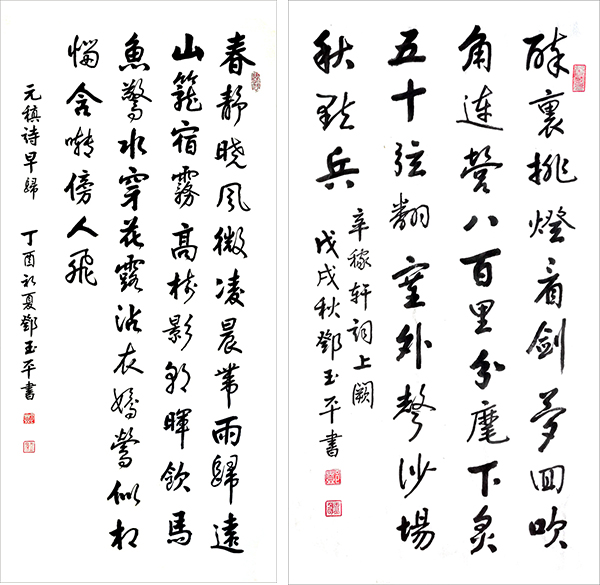 春靜曉風微凌晨帶雨歸遠
山籠宿霧高樹影朝暉飲馬
魚驚水穿花露沾衣嬌鶯似相
惱含囀傍人飛
元稹诗早歸 丁酉初夏鄧玉平書
醉裏挑燈看劍夢回吹
角連營八百里分麾下炙
五十弦翻塞外聲沙場
秋點兵
辛稼轩词上闕
戊戌秋鄧玉平書